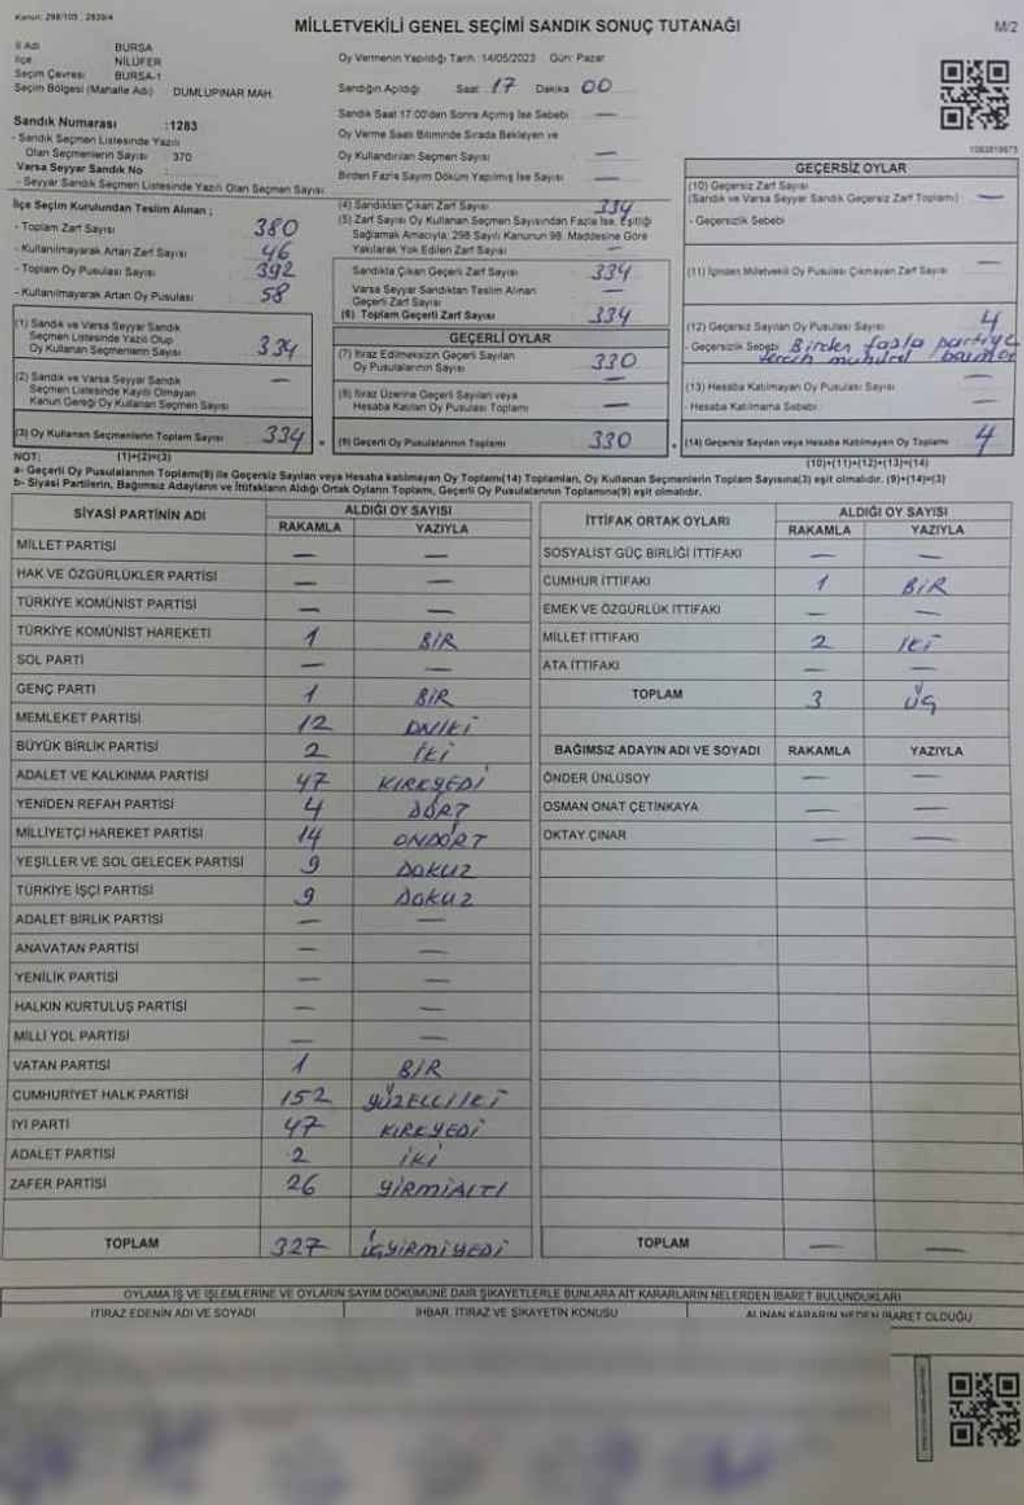 Kanun: 298/105, 2839/4
MİLLETVEKİLİ GENEL SEÇİMİ SANDIK SONUÇ TUTANAĞI
M/2
İl Adı BURSA
İlçe NİLÜFER
Seçim Çevresi BURSA-1
Seçim Bölgesi (Mahalle Adı) DUMLUPINAR MAH.
Sandık Numarası :1283
- Sandık Seçmen Listesinde Yazılı
Olan Seçmenlerin Sayısı 370
Varsa Seyyar Sandık No
- Seyyar Sandık Seçmen Listesinde Yazılı Olan Seçmen Sayısı
Oy Vermenin Yapıldığı Tarih: 14/05/2023 Gün: Pazar
Sandığın Açıldığı Saat 17 Dakika 00
Sandık Saat 17.00'den Sonra Açılmış İse Sebebi —
Oy Verme Saati Bitiminde Sırada Bekleyen ve
Oy Kullandırılan Seçmen Sayısı —
Birden Fazla Sayım Döküm Yapılmış İse Sayısı —
İlçe Seçim Kurulundan Teslim Alınan ;
- Toplam Zarf Sayısı 380
- Kullanılmayarak Artan Zarf Sayısı 46
- Toplam Oy Pusulası Sayısı 392
- Kullanılmayarak Artan Oy Pusulası 58
(1) Sandık ve Varsa Seyyar Sandık
Seçmen Listesinde Yazılı Olup
Oy Kullanan Seçmenlerin Sayısı 334
(2) Sandık ve Varsa Seyyar Sandık
Seçmen Listesinde Kayıtlı Olmayan
Kanun Gereği Oy Kullanan Seçmen Sayısı —
(3) Oy Kullanan Seçmenlerin Toplam Sayısı 334
(4) Sandıktan Çıkan Zarf Sayısı 334
(5) Zarf Sayısı Oy Kullanan Seçmen Sayısından Fazla İse, Eşitliği
Sağlamak Amacıyla; 298 Sayılı Kanunun 98. Maddesine Göre
Yakılarak Yok Edilen Zarf Sayısı —
Sandıkta Çıkan Geçerli Zarf Sayısı 334
Varsa Seyyar Sandıktan Teslim Alınan
Geçerli Zarf Sayısı —
(6) Toplam Geçerli Zarf Sayısı 334
GEÇERLİ OYLAR
(7) İtiraz Edilmeksizin Geçerli Sayılan
Oy Pusulalarının Sayısı 330
(8) İtiraz Üzerine Geçerli Sayılan veya
Hesaba Katılan Oy Pusulası Toplamı —
(9) Geçerli Oy Pusulalarının Toplamı 330
GEÇERSİZ OYLAR
(10) Geçersiz Zarf Sayısı
(Sandık ve Varsa Seyyar Sandık Geçersiz Zarf Toplamı) —
- Geçersizlik Sebebi
(11) İçinden Milletvekili Oy Pusulası Çıkmayan Zarf Sayısı —
(12) Geçersiz Sayılan Oy Pusulası Sayısı 4
- Geçersizlik Sebebi Birden fazla partiye
tercih mühürü basması
(13) Hesaba Katılmayan Oy Pusulası Sayısı —
- Hesaba Katılmama Sebebi —
(14) Geçersiz Sayılan veya Hesaba Katılmayan Oy Toplamı 4
NOT: (1)+(2)=(3)
(10)+(11)+(12)+(13)=(14)
a- Geçerli Oy Pusulalarının Toplamı(9) ile Geçersiz Sayılan veya Hesaba katılmayan Oy Toplamı(14) Toplamları, Oy Kullanan Seçmenlerin Toplam Sayısına(3) eşit olmalıdır. (9)+(14)=(3)
b- Siyasi Partilerin, Bağımsız Adayların ve İttifakların Aldığı Ortak Oyların Toplamı, Geçerli Oy Pusulalarının Toplamına(9) eşit olmalıdır.
SİYASİ PARTİNİN ADI
ALDIĞI OY SAYISI
RAKAMLA YAZIYLA
MİLLET PARTİSİ — —
HAK VE ÖZGÜRLÜKLER PARTİSİ — —
TÜRKİYE KOMÜNİST PARTİSİ — —
TÜRKİYE KOMÜNİST HAREKETİ 1 BİR
SOL PARTİ — —
GENÇ PARTİ 1 BİR
MEMLEKET PARTİSİ 12 ONİKİ
BÜYÜK BİRLİK PARTİSİ 2 İKİ
ADALET VE KALKINMA PARTİSİ 47 KIRKYEDİ
YENİDEN REFAH PARTİSİ 4 DÖRT
MİLLİYETÇİ HAREKET PARTİSİ 14 ONDÖRT
YEŞİLLER VE SOL GELECEK PARTİSİ 9 DOKUZ
TÜRKİYE İŞÇİ PARTİSİ 9 DOKUZ
ADALET BİRLİK PARTİSİ — —
ANAVATAN PARTİSİ — —
YENİLİK PARTİSİ — —
HALKIN KURTULUŞ PARTİSİ — —
MİLLİ YOL PARTİSİ — —
VATAN PARTİSİ 1 BİR
CUMHURİYET HALK PARTİSİ 152 YÜZELLİİKİ
İYİ PARTİ 47 KIRKYEDİ
ADALET PARTİSİ 2 İKİ
ZAFER PARTİSİ 26 YİRMİALTI
TOPLAM 327 ÜÇYİRMİYEDİ
İTTİFAK ORTAK OYLARI
ALDIĞI OY SAYISI
RAKAMLA YAZIYLA
SOSYALİST GÜÇ BİRLİĞİ İTTİFAKI — —
CUMHUR İTTİFAKI 1 BİR
EMEK VE ÖZGÜRLÜK İTTİFAKI — —
MİLLET İTTİFAKI 2 İKİ
ATA İTTİFAKI — —
TOPLAM 3 ÜÇ
BAĞIMSIZ ADAYIN ADI VE SOYADI RAKAMLA YAZIYLA
ÖNDER ÜNLÜSOY — —
OSMAN ONAT ÇETİNKAYA — —
OKTAY ÇINAR — —
TOPLAM — —
OYLAMA İŞ VE İŞLEMLERİNE VE OYLARIN SAYIM DÖKÜMÜNE DAİR ŞİKAYETLERLE BUNLARA AİT KARARLARIN NELERDEN İBARET BULUNDUKLARI
İTİRAZ EDENİN ADI VE SOYADI
İHBAR, İTİRAZ VE ŞİKAYETİN KONUSU
ALINAN KARARIN NEDEN İBARET OLDUĞU